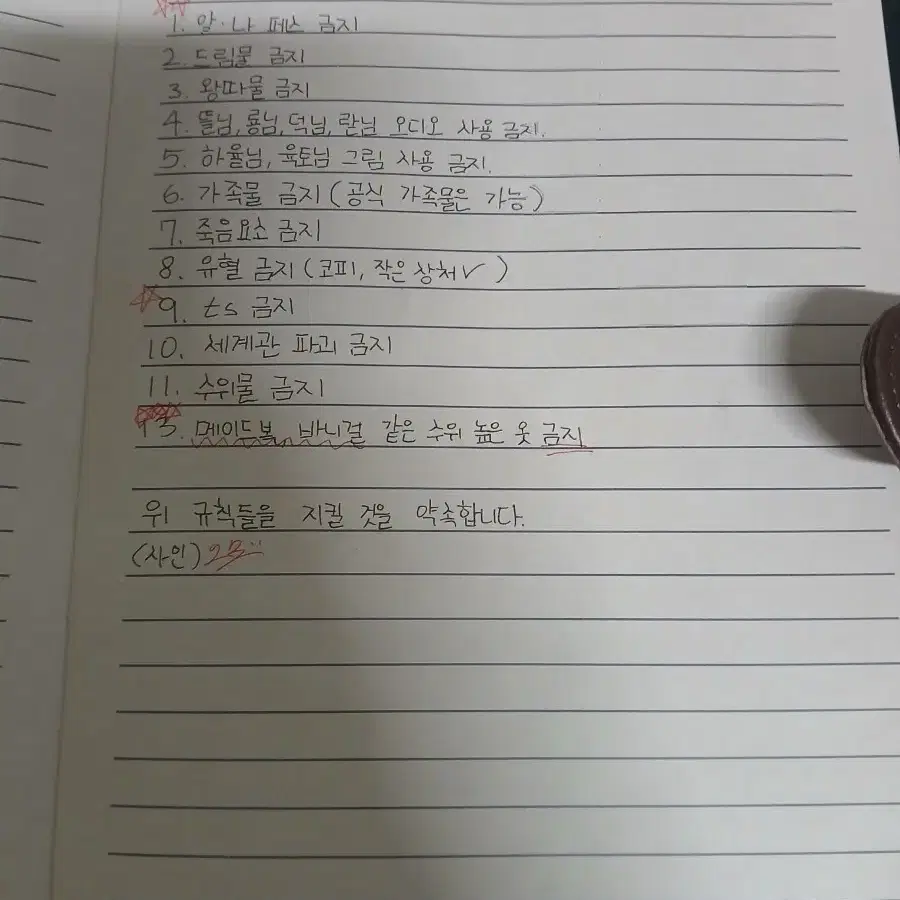 1. 알·나 페스 금지
2. 드림물 금지
3. 왕따물 금지
4. 뜰님, 룡님, 덕님, 란님 오디오 사용 금지.
5. 하율님, 육토님 그림 사용 금지.
6. 가족물 금지 (공식 가족물은 가능)
7. 죽음요소 금지
8. 유혈 금지 (코피, 작은 상처✓)
9. ts 금지
10. 세계관 파괴 금지
11. 수위물 금지
13. 메이드복, 바니걸 같은 수위 높은 옷 금지
위 규칙들을 지킬 것을 약속합니다.
(사인)